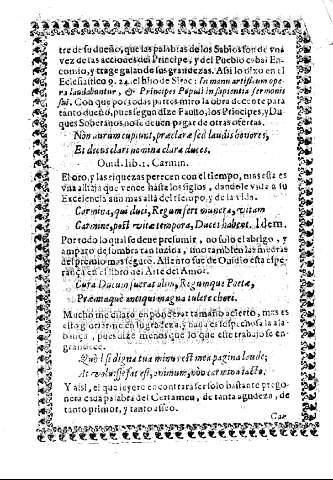 tre de su dueño, que las palabras de los Sabios son de vna
vez de las acciones del Principe, y del Pueblo cabal En-
comio, y trage galano de sus grandezas. Assi lo dixo en el
Eclesiastico 9. 24. el hijo de Sirac: In manu artificum ope
ra laudabuntur, & Princeps Populi in sapientia sermonis
sui. Con que por todas partes miro la obra decente para
tanto dueño, pues segun dize Paulo, los Principes, y Du
ques Soberanos no se deuen pagar de otras ofertas.
Non aurum cupiunt, præclaræ sed laudis honores,
Et decus clari nomina clara duces.
Ouid. lib. 1. Carmin.
El oro, y las riquezas perecen con el tiempo, mas esta es
vna alhaja que vence hasta los siglos, dandole vida a su
Excelencia aun mas allà del tiempo, y de la vida.
Carmina, qui duci, Regum fert munera, vitam
Carmine, post vitæ tempora, Duces habent. Idem.
Por todo lo qual se deue presumir, no solo el abrigo, y
amparo de sombra tan luzida, sino tambien las medras
del premio mas seguro. Aliento fue de Ouidio esta espe-
rança en el libro del Arte del Amor.
Cura Ducum fuerat olim, Regumque Poetæ,
Præmiaquè antiqui magna tulere chori.
Mucho me dilato en ponderar tamaño acierto, mas es
ella gloriarme en su grandeza, y nada es sospechosa la ala-
bança, pues dize menos que lo que este trabajo se en-
grandece.
Quò si digna tua minus est mea pagina laude;
At voluisse sat est, animum, non carmina iacto.
Y assi, el que leyere encontrarà ser solo bastante prego-
nera cada palabra del Certamen, de tanta agudeza, de
tanto primor, y tanto asseo.
Car-